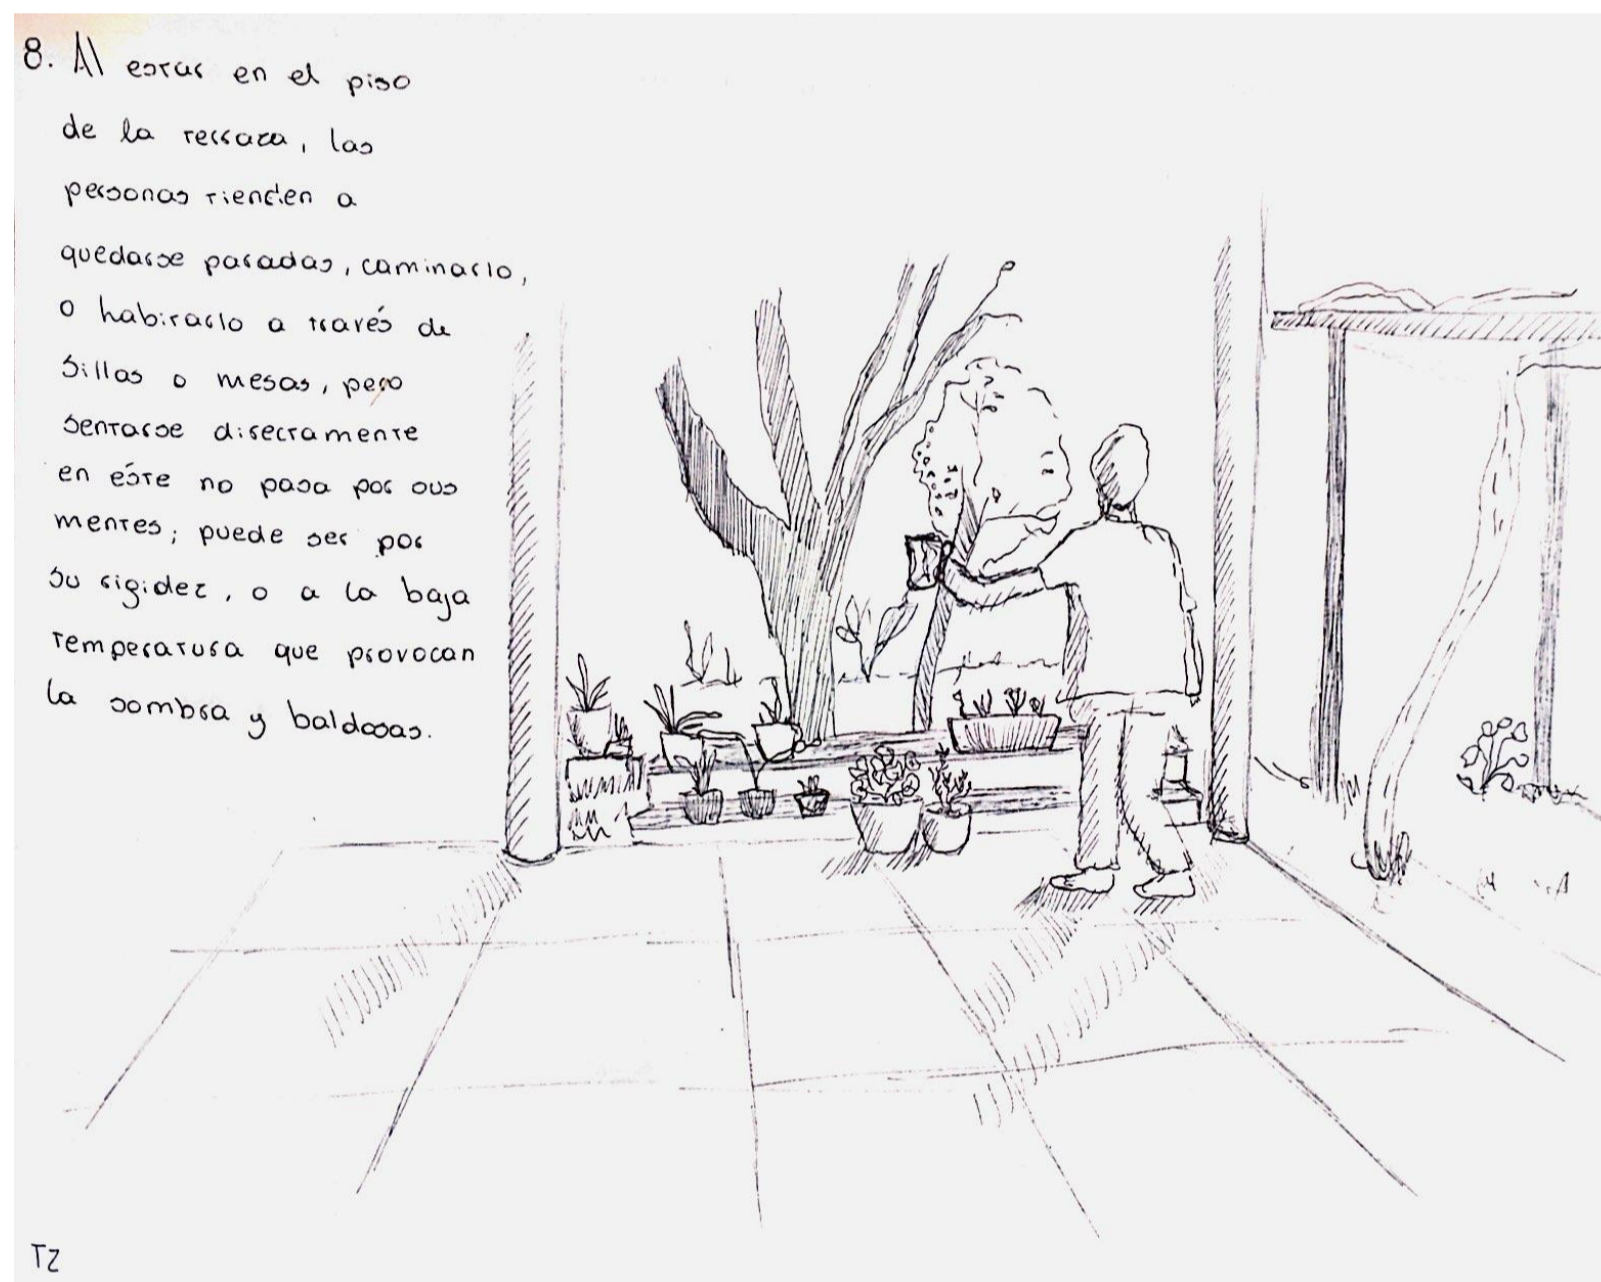 8. Al estar en el piso
de la terraza, las
personas tienden a
quedarse paradas, caminarlo,
o habitarlo a través de
sillas o mesas, pero
sentarse directamente
en éste no pasa por sus
mentes; puede ser por
su rigidez, o a la baja
temperatura que provocan
la sombra y baldosas.
TZ